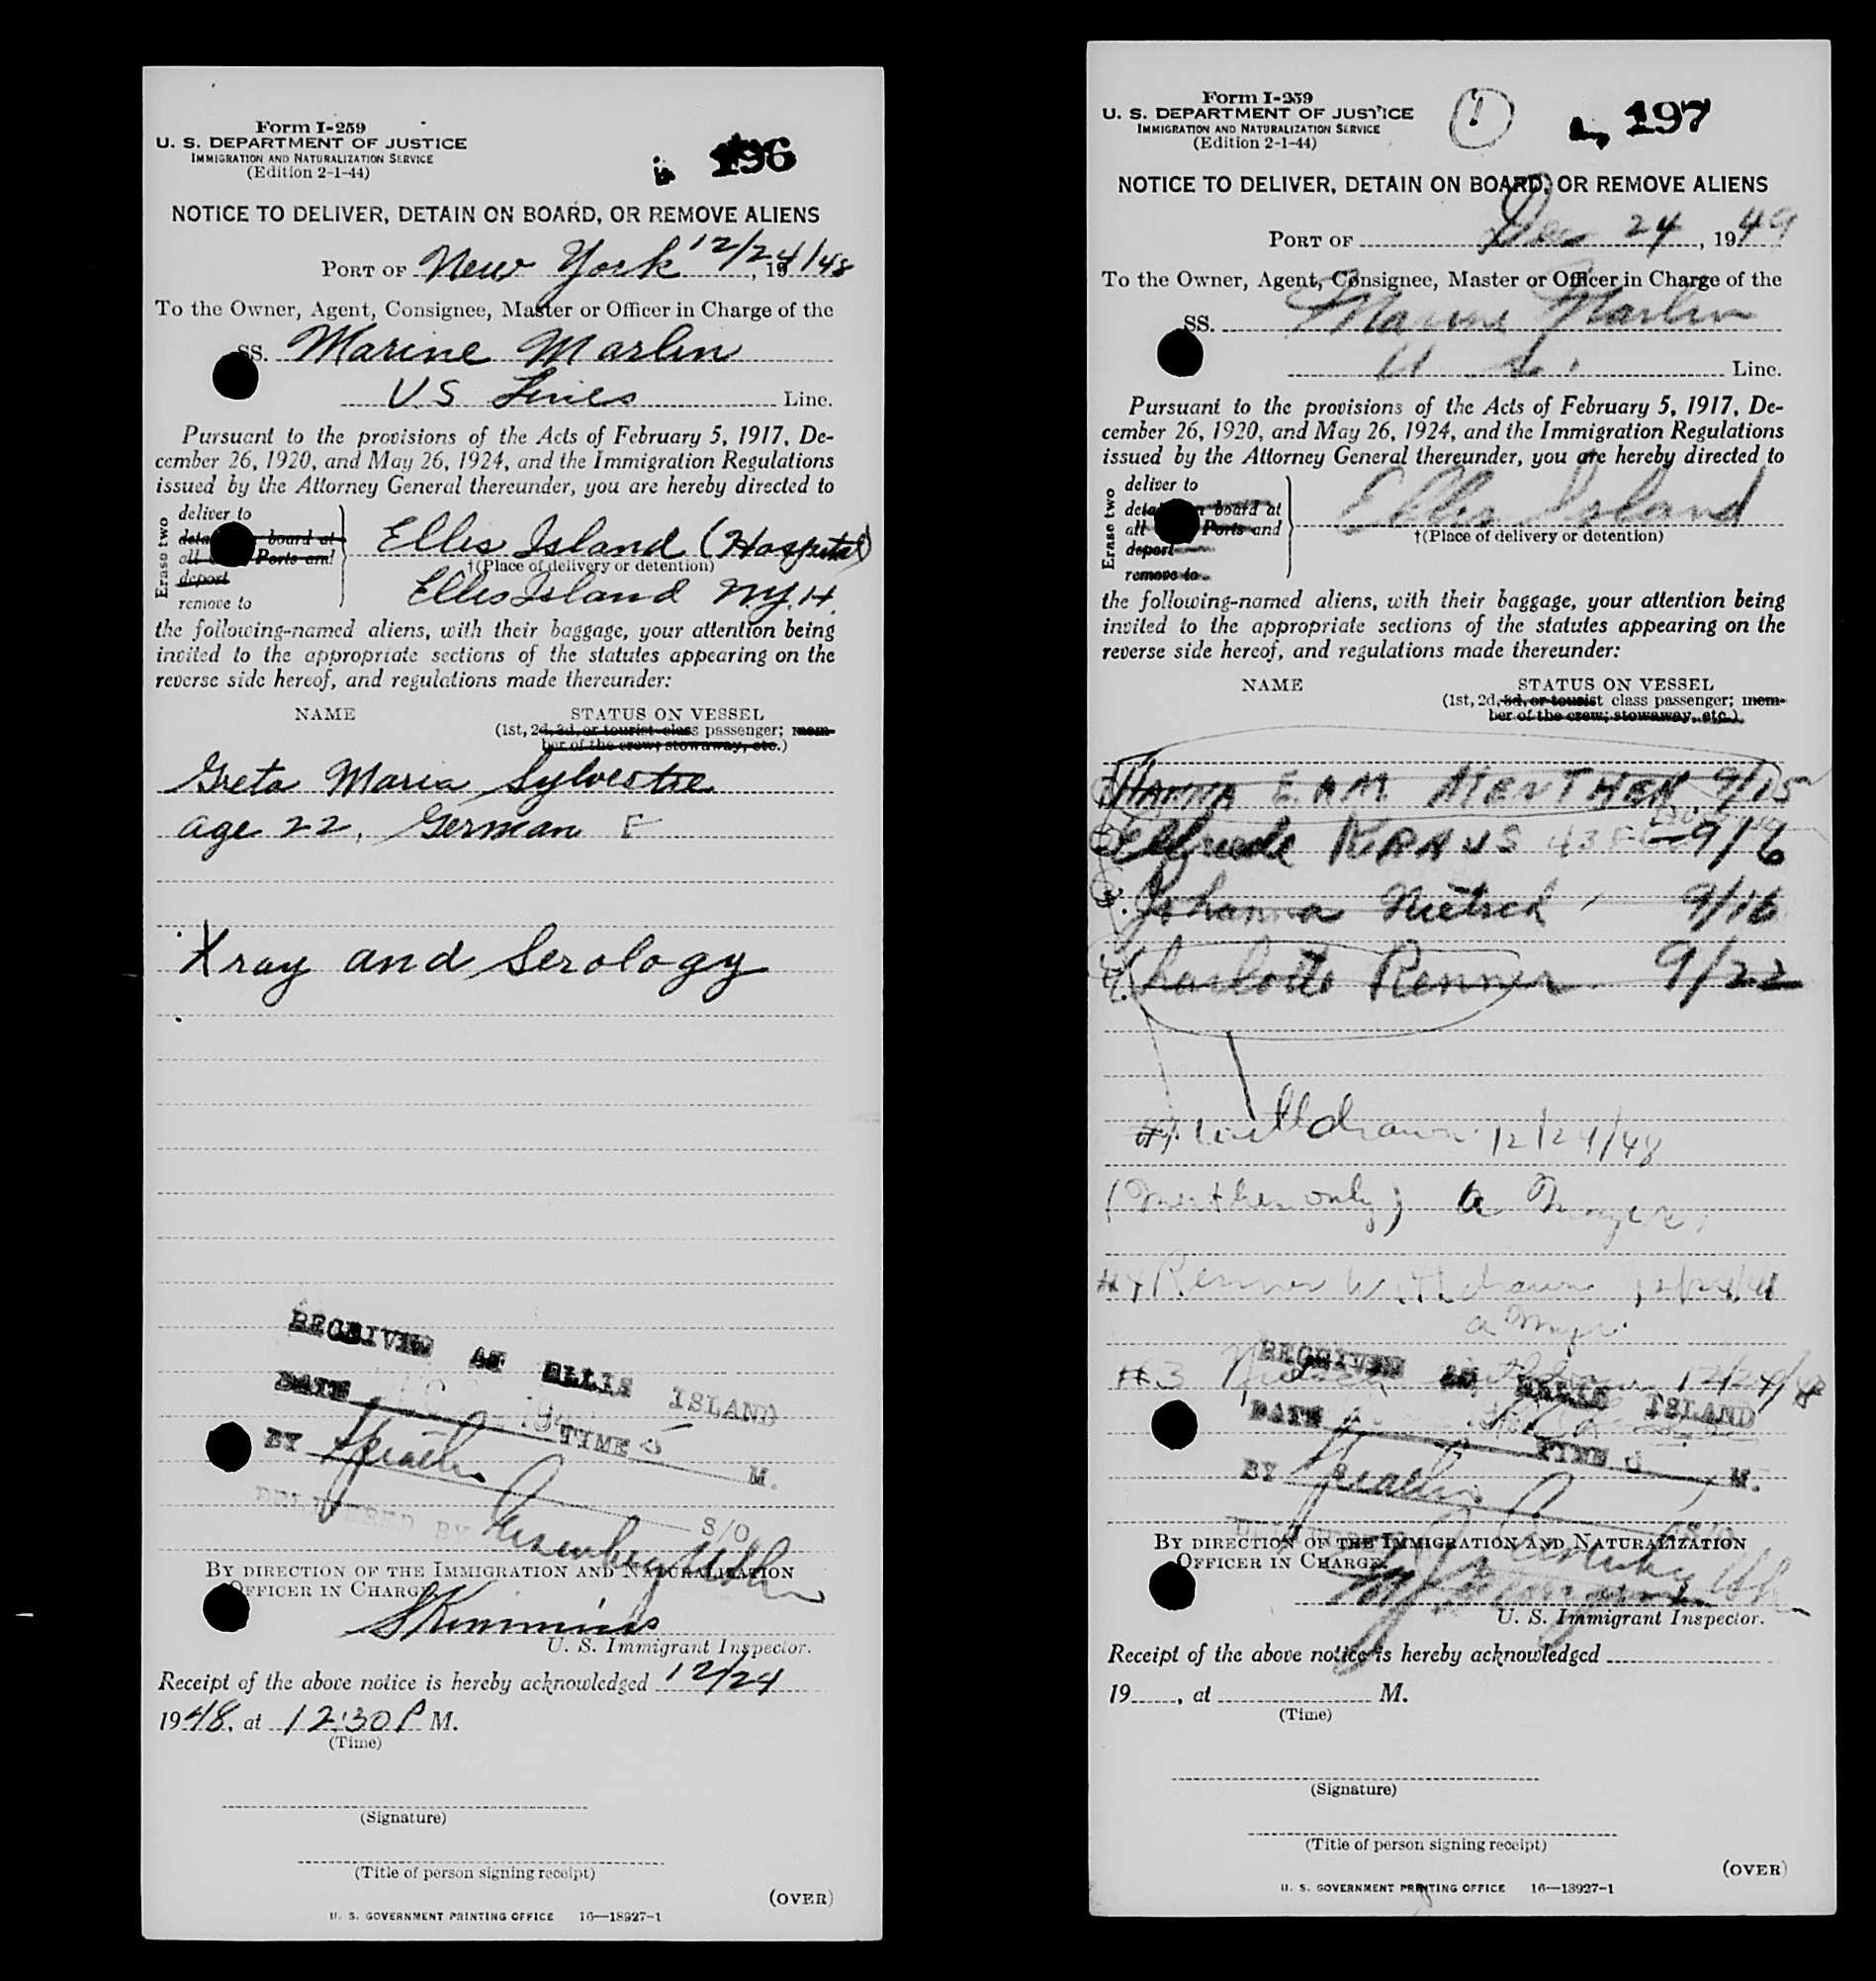 Form I-259
U. S. DEPARTMENT OF JUSTICE
IMMIGRATION AND NATURALIZATION SERVICE
(Edition 2-1-44)
196
NOTICE TO DELIVER, DETAIN ON BOARD, OR REMOVE ALIENS
PORT OF New York 12/24/48, 19
To the Owner, Agent, Consignee, Master or Officer in Charge of the
SS. Marine Marlin
U.S Lines Line.
Pursuant to the provisions of the Acts of February 5, 1917, De-
cember 26, 1920, and May 26, 1924, and the Immigration Regulations
issued by the Attorney General thereunder, you are hereby directed to
Erase two
deliver to
board at
all Ports and
deport
remove to
Ellis Island (Hospital)
†(Place of delivery or detention)
Ellis Island N.Y.H.
the following-named aliens, with their baggage, your attention being
invited to the appropriate sections of the statutes appearing on the
reverse side hereof, and regulations made thereunder:
NAME STATUS ON VESSEL
(1st, 2d, 3d, or tourist class passenger; mem-
ber of the crew; stowaway, etc.)
Greta Maria Sylvestre
age 22, German F
Xray and Serology
RECEIVED AT ELLIS ISLAND
DATE TIME M.
BY
DELIVERED BY S/O
BY DIRECTION OF THE IMMIGRATION AND NATURALIZATION
OFFICER IN CHARGE
U. S. Immigrant Inspector.
Receipt of the above notice is hereby acknowledged 12/24
1948, at 12:30 P M.
(Time)
(Signature)
(Title of person signing receipt)
(OVER)
U. S. GOVERNMENT PRINTING OFFICE 16—18927-1
Form I-259
U. S. DEPARTMENT OF JUSTICE
IMMIGRATION AND NATURALIZATION SERVICE
(Edition 2-1-44)
197
NOTICE TO DELIVER, DETAIN ON BOARD, OR REMOVE ALIENS
PORT OF Dec 24, 1949
To the Owner, Agent, Consignee, Master or Officer in Charge of the
SS. Marine Marlin
Line.
Pursuant to the provisions of the Acts of February 5, 1917, De-
cember 26, 1920, and May 26, 1924, and the Immigration Regulations
issued by the Attorney General thereunder, you are hereby directed to
Erase two
deliver to
board at
all Ports and
deport
remove to
Ellis Island
†(Place of delivery or detention)
the following-named aliens, with their baggage, your attention being
invited to the appropriate sections of the statutes appearing on the
reverse side hereof, and regulations made thereunder:
NAME STATUS ON VESSEL
(1st, 2d, 3d, or tourist class passenger; mem-
ber of the crew; stowaway, etc.)
HANNA E. A M. MENTHEN 9/15
Elfriede KRAUS 43 F 9/6
Johanna Nietsch 9/16
Charlotte Renner 9/22
#1 Withdrawn 12/24/48
(Menthen only)
#4 Renner Withdrawn 12/24/48
#3 12/24/48
RECEIVED AT ELLIS ISLAND
DATE TIME M.
BY
BY DIRECTION OF THE IMMIGRATION AND NATURALIZATION
OFFICER IN CHARGE.
U. S. Immigrant Inspector.
Receipt of the above notice is hereby acknowledged
19 , at M.
(Time)
(Signature)
(Title of person signing receipt)
(OVER)
U. S. GOVERNMENT PRINTING OFFICE 16—18927-1